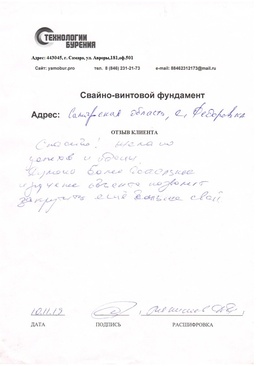 ТЕХНОЛОГИИ
БУРЕНИЯ
Адрес: 443045, г. Самара, ул. Авроры,181,оф.501
Сайт: yamobur.pro тел. 8 (846) 231-21-73 e-mail: 89462313173@mail.ru
Свайно-винтовой фундамент
Адрес: Самарская область, с. Федоровка
ОТЗЫВ КЛИЕНТА
Спасибо! Желаю
успехов и удачи.
Думаю более детальное
изучение объекта позволит
закрутить ещё больше свай
10.11.19
ДАТА ПОДПИСЬ РАСШИФРОВКА